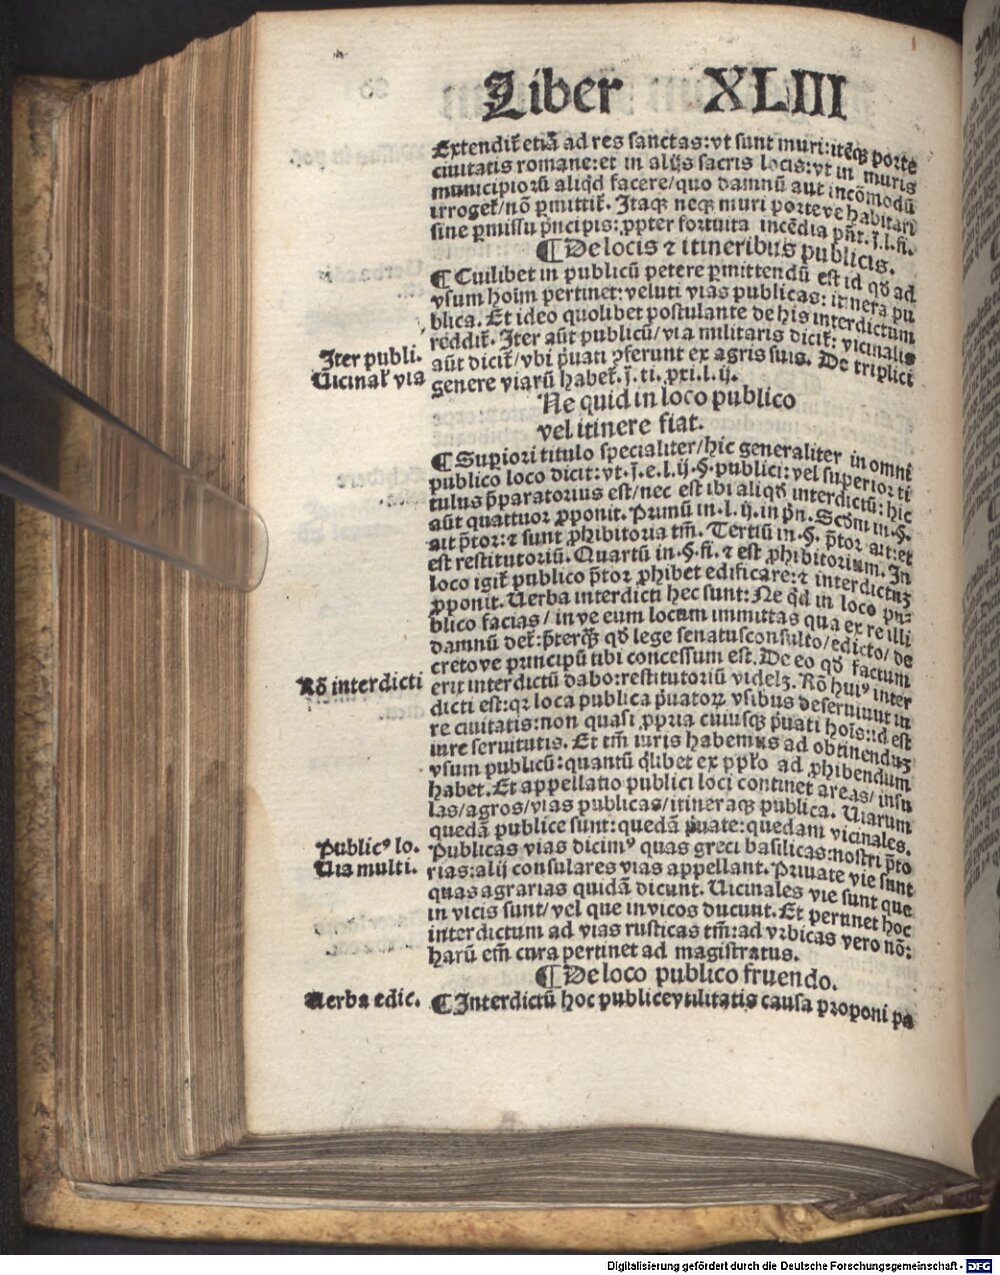 Liber XLIII
Extendit̃ etiã ad res sanctas: vt sunt muri: itẽqꝫ porte
ciuitatis romane: et in alijs sacris locis: vt in muris
municipiorũ aliqd̓ facere/ quo damnũ aut incõmodũ
irroget̃/ nõ ꝑmittit̃. Itaqꝫ neqꝫ muri porteve habitari
sine ꝑmissu p̓ncipis: ꝓpter fortuita incẽdia pñt. j̃. l. fi.
¶ De locis ⁊ itineribus publicis.
¶ Cuilibet in publicũ petere ꝑmittendũ est id qđ ad
vsum hoĩm pertinet: veluti vias publicas: itinera pu
blica. Et ideo quolibet postulante de his interdictum
reddit̃. Iter aũt publicũ/ via militaris dicit̃: vicinalis
Iter publi.
aũt dicit̃/ vbi p̓uati ꝯferunt ex agris suis. De triplici
Uicinal̃ via
genere viarũ habet̃. j̃. ti. ꝓxi. l. ij.
Ne quid in loco publico
vel itinere fiat.
¶ Supiori titulo specialiter/ hic generaliter in omni
publico loco dicit: vt. j̃. e. l. ij. §. publici: vel superior ti
tulus p̃paratorius est/ nec est ibi aliqđ interdictũ: hic
aũt quattuor ꝓponit. Primũ in. l. ij. in pñ. Scđm in. §.
ait p̃tor: ⁊ sunt ꝓhibitoria tm̃. Tertiũ in. §. p̃tor ait: et
est restitutoriũ. Quartũ in. §. fi. ⁊ est ꝓhibitorium. In
loco igit̃ publico p̃tor ꝓhibet edificare: ⁊ interdictuꝫ
ꝓponit. Uerba interdicti hec sunt: Ne qd̓ in loco pu
blico facias/ inve eum locum immittas qua ex re illi
damnũ det̃: p̃terqꝫ̃ qđ lege senatusconsulto/ edicto/ de
cretove principũ tibi concessum est. De eo qđ factum
Rõ interdicti
erit interdictũ dabo: restitutoriũ videlꝫ. Rõ huiꝰ inter
dicti est: qꝛ loca publica p̓uatoꝝ vsibus deseruiunt iu
re ciuitatis: non quasi ꝓpria cuiusqꝫ p̓uati hoĩs: id est
iure seruitutis. Et tm̃ iuris habemus ad obtinenduꝫ
vsum publicũ: quantũ q̓libet ex pp̃lo ad ꝓhibendum
habet. Et appellatio publici loci continet areas/ insu
las/ agros/ vias publicas/ itineraqꝫ publica. Uiarum
quedã publice sunt: quedã p̓uate: quedam vicinales.
Publicꝰ lo.
Publicas vias dicimꝰ quas greci basilicas: nostri p̃to
Uia multi.
rias: alij consulares vias appellant. Priuate vie sunt
quas agrarias quidã dicunt. Uicinales vie sunt que
in vicis sunt/ vel que in vicos ducunt. Et pertinet hoc
interdictum ad vias rusticas tm̃: ad vrbicas vero nõ:
harũ em̃ cura pertinet ad magistratus.
¶ De loco publico fruendo.
Uerba edic.
¶ Interdictũ hoc publice vtilitatis causa proponi pa
Digitalisierung gefördert durch die Deutsche Forschungsgemeinschaft - DFG